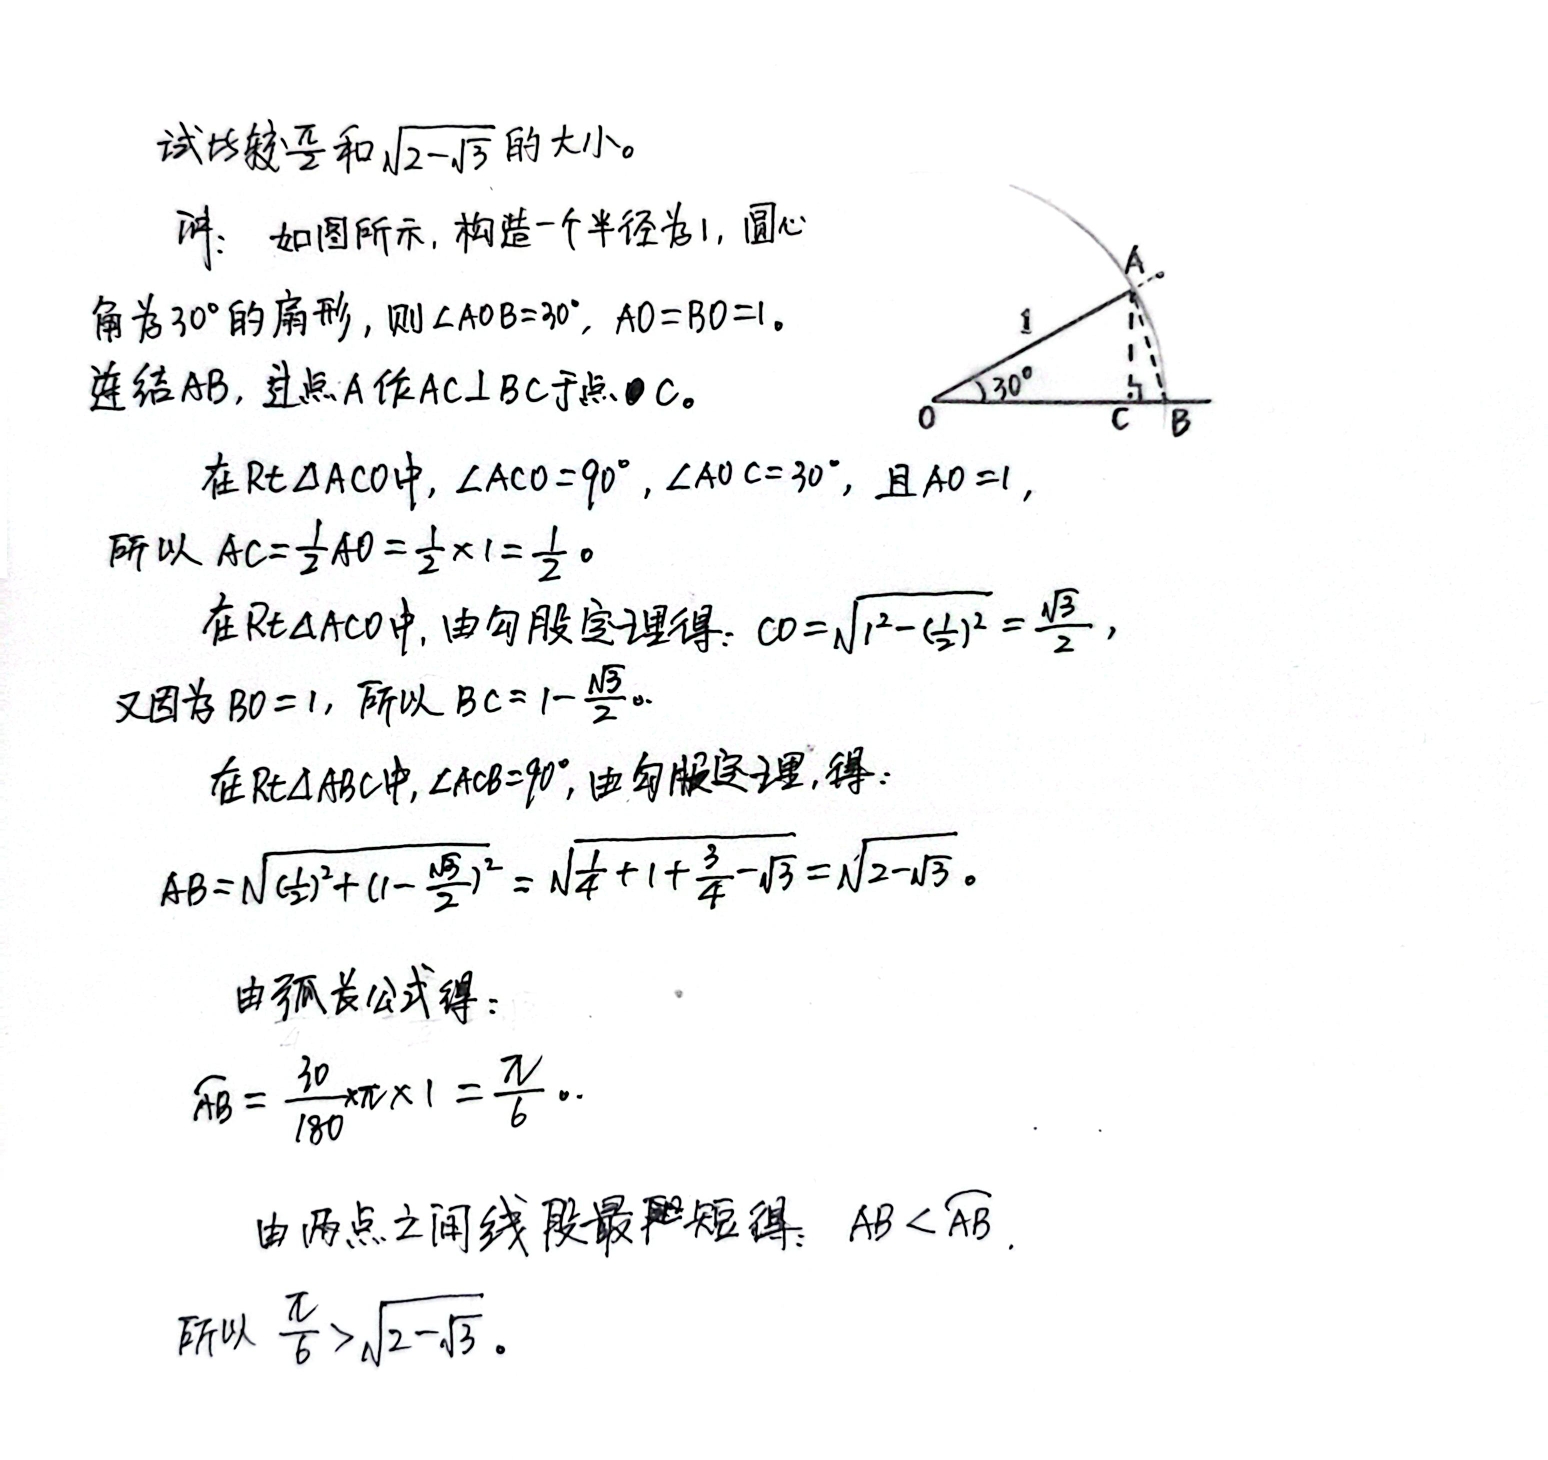 试比较π/2和√(2-√3)的大小。
解: 如图所示, 构造一个半径为1, 圆心
角为30°的扇形, 则∠AOB=30°, AO=BO=1。
连结AB, 过点A作AC⊥BC于点C。
A
1
30°
O
C
B
在Rt△ACO中, ∠ACO=90°, ∠AOC=30°, 且AO=1,
所以 AC=1/2AO=1/2×1=1/2。
在Rt△ACO中, 由勾股定理得: CO=√(1²-(1/2)²)=√3/2,
又因为BO=1, 所以BC=1-√3/2。
在Rt△ABC中, ∠ACB=90°, 由勾股定理, 得:
AB=√((1/2)²+(1-√3/2)²)=√(1/4+1+3/4-√3)=√(2-√3)。
由弧长公式得:
⌒AB=30/180×π×1=π/6。
由两点之间线段最短得: AB<⌒AB.
所以 π/6>√(2-√3)。